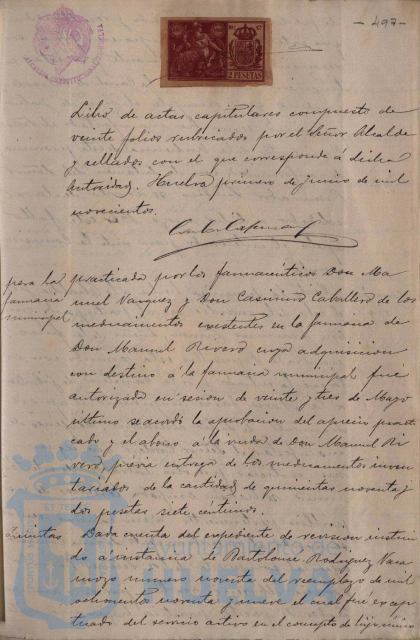 - 497 -
2 PESETAS
Libro de actas capitulares compuesto de
veinte folios rubricados por el Señor Alcalde
y sellados con el que corresponde á dicha
Autoridad. Huelva primero de Junio de mil
novecientos.
para la
farmacia
municipal
practicada por los farmacéuticos Don Ma
nuel Vazquez y Don Casimiro Caballero de los
medicamentos existentes en la farmacia de
Don Manuel Rivero cuya adquisicion
con destino á la farmacia municipal fué
autorizada en sesion de veinte y tres de Mayo
último se acordó la aprobacion del aprecio practi
cado y el abono á la viuda de Don Manuel Ri
vero, previa entrega de los medicamentos inven
tariados de la cantidad de quinientas noventa y
dos pesetas siete céntimos.
Quintas
Dada cuenta del expediente de revision instrui
do a instancia de Bartolomé Rodriguez Vara
mozo numero noventa del reemplazo de mil
ochocientos noventa y nueve el cual fué excep
tuado del servicio activo en el concepto de hijo único